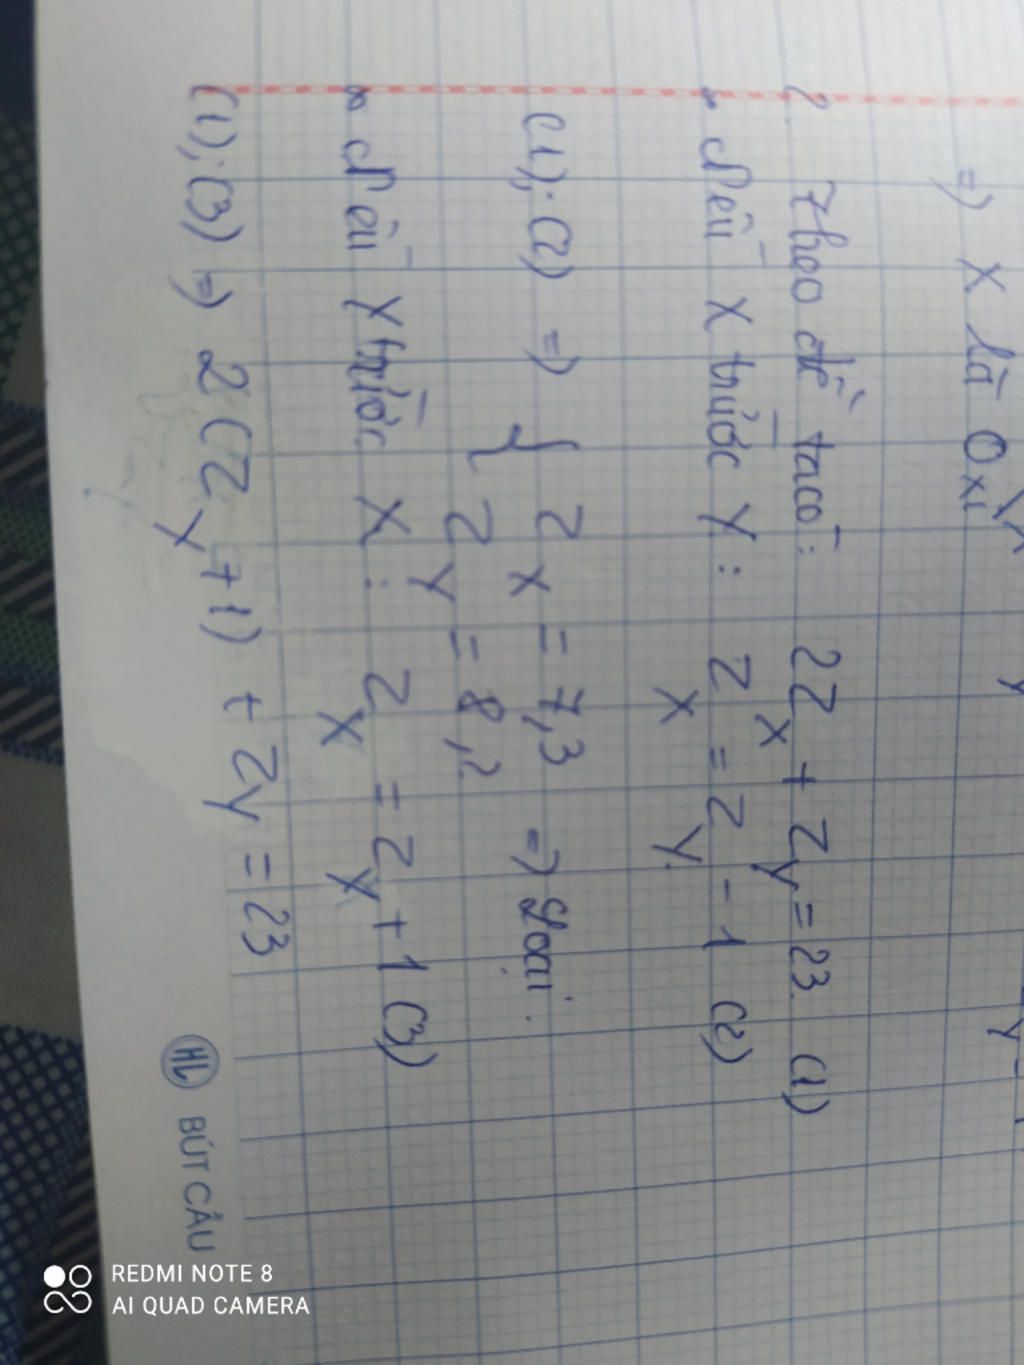 =) X là Oxi
2. Theo đề ta có: 2Z_X + Z_Y = 23. (1)
* Nếu X trước Y: Z_X = Z_Y - 1 (2)
(1); (2) =) { Z_X = 7,3
Z_Y = 8,2 =) Loại.
* Nếu Y trước X: Z_X = Z_Y + 1 (3)
(1); (3) =) 2(Z_Y + 1) + Z_Y = 23
HL BÚT CẦU
REDMI NOTE 8
AI QUAD CAMERA